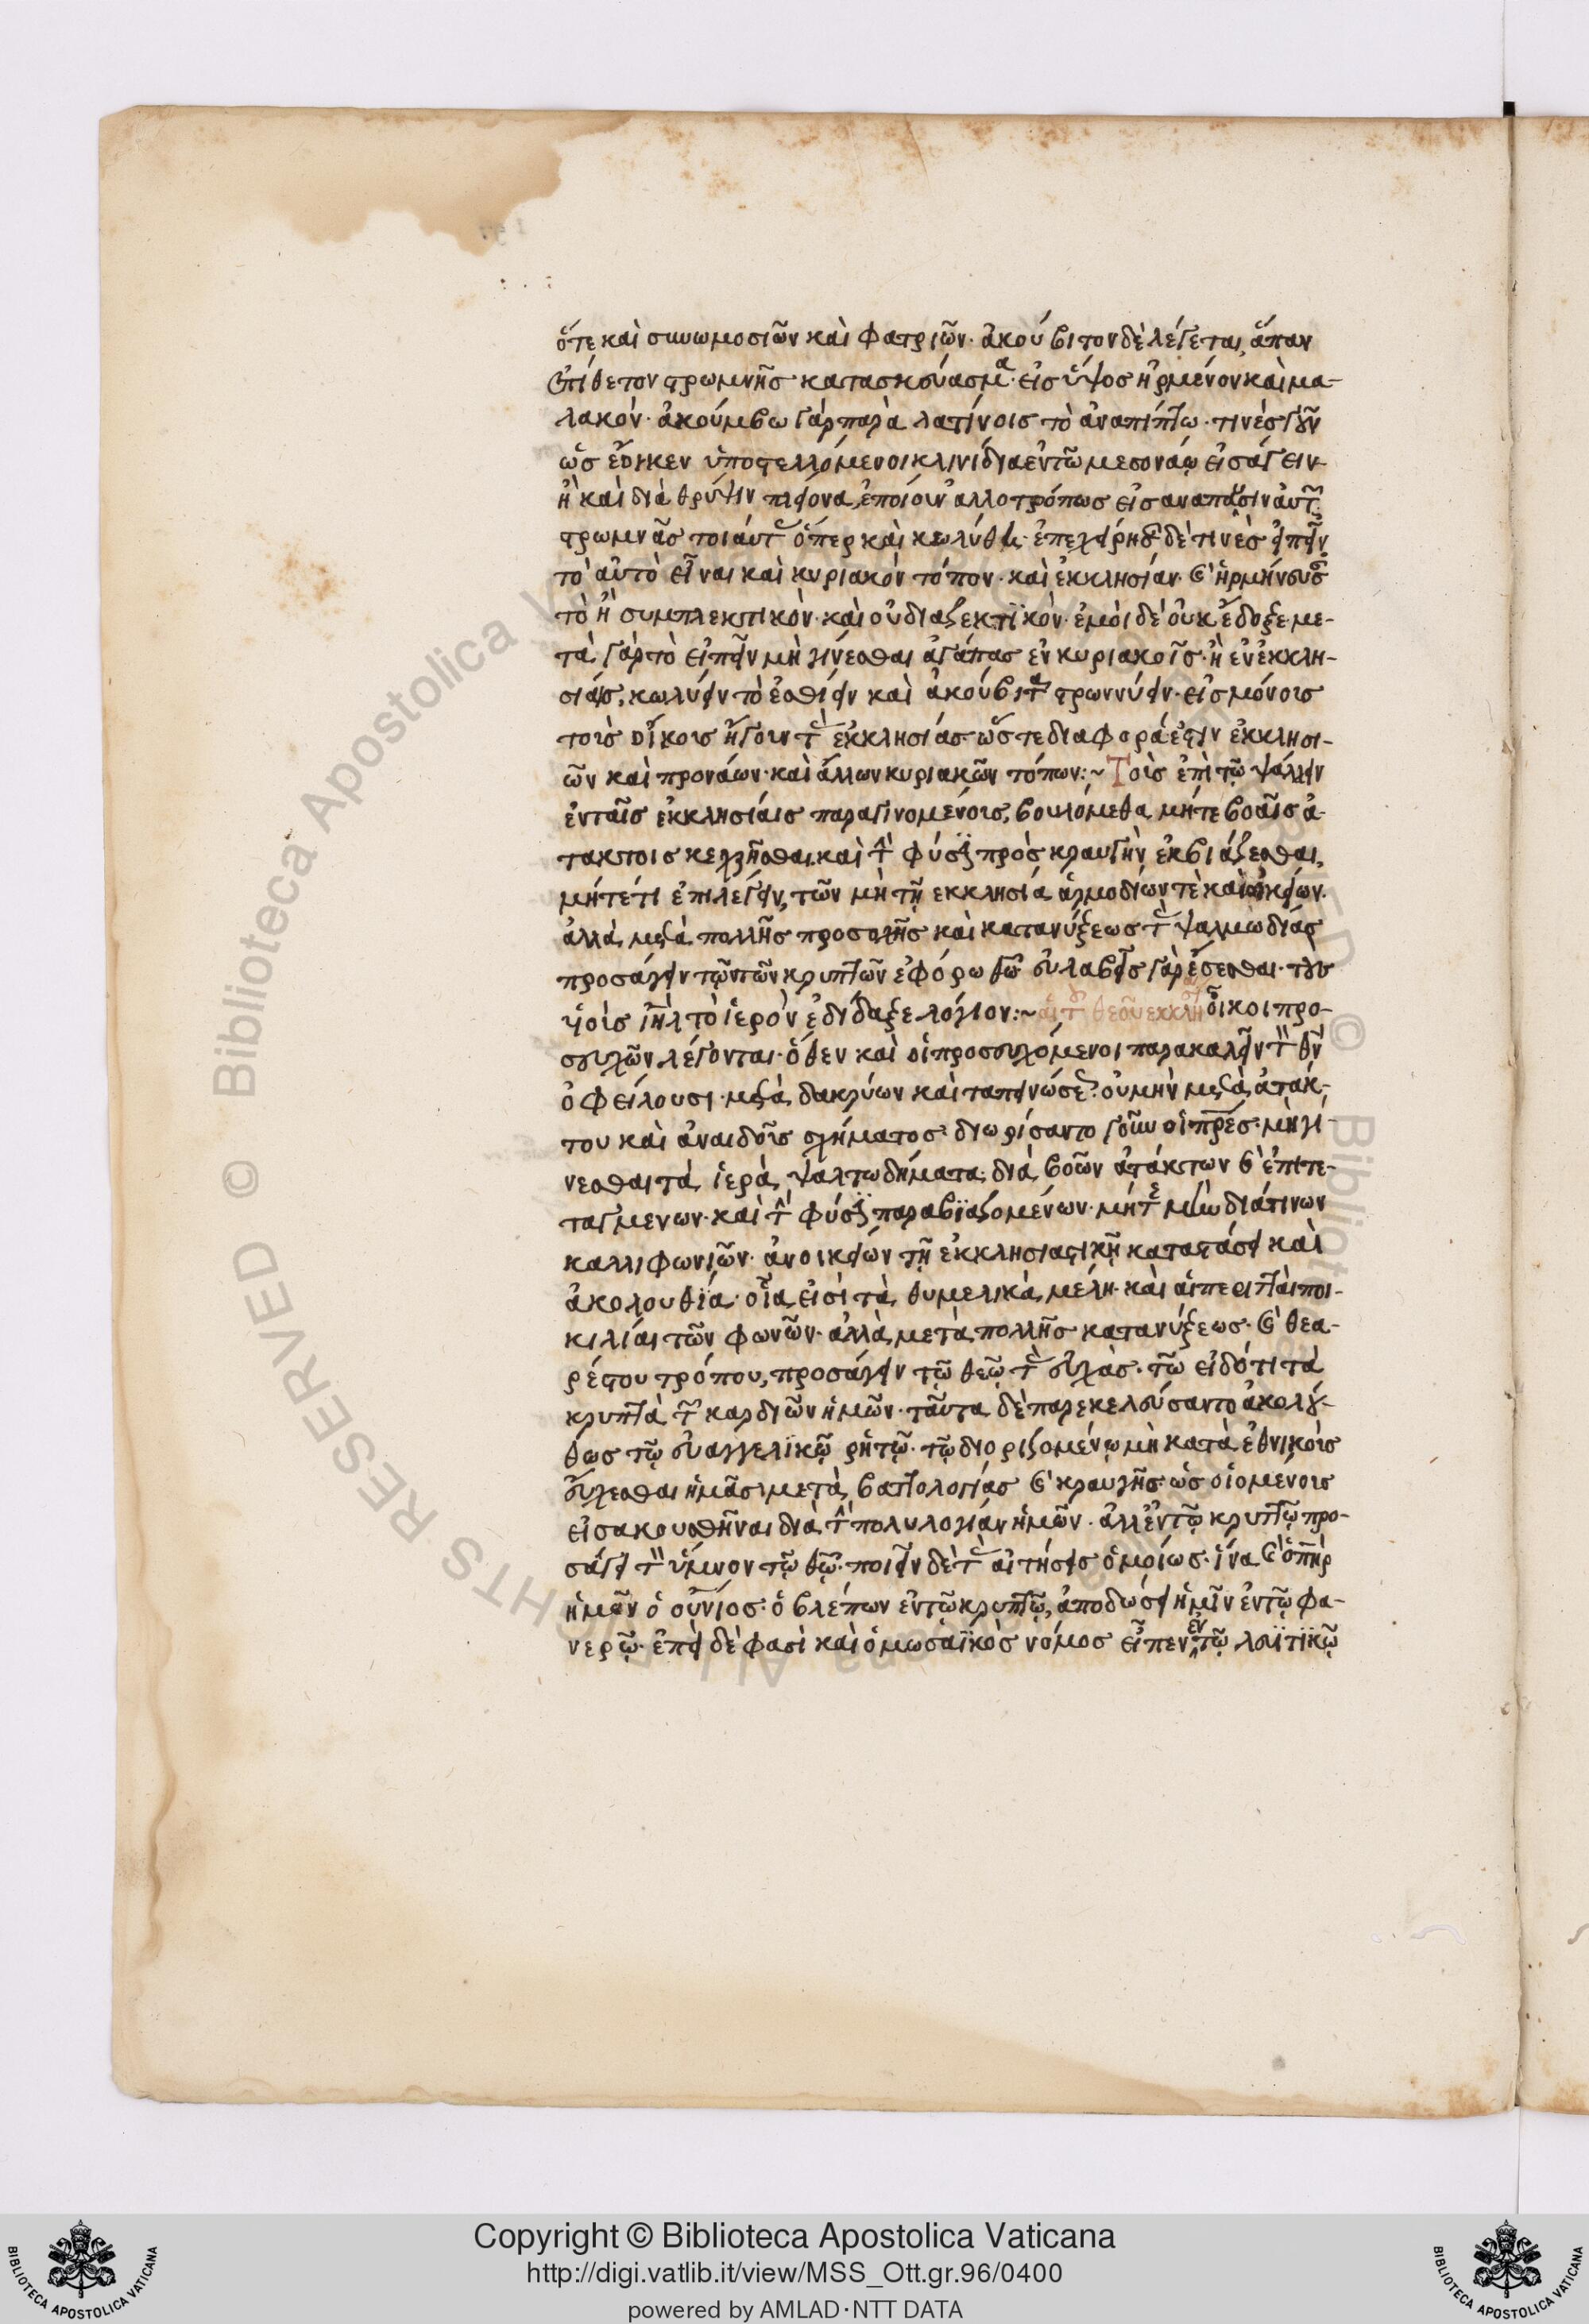 ὅτε καὶ συνωμοσιῶν καὶ φατριῶν· ἀκούβιτον δὲ λέγεται, ἅπαν
ἐπίθετον στρωμνῆς κατασκεύασμα· εἰς ὕψος ἠρμένον καὶ μα-
λακόν· ἀκούμβω γὰρ παρὰ λατίνοις τὸ ἀναπίπτω· τινὲς γοῦν
ὡς ἔοικεν ὑποστελλόμενοι κλινίδια ἐν τῶ μεσονάῳ εἰσάγειν
ἢ καὶ διὰ θρύψιν πλείονα, ἐποίουν ἀλλοτρόπως εἰς ἀναπαυσιν αὐτῶν
στρωμνὰς τοιαύτας ὅπερ καὶ κωλύθη· ἐπεχείρησαν δὲ τινὲς εἰπεῖν
τὸ αὐτὸ εἶναι καὶ κυριακὸν τόπον· καὶ ἐκκλησίαν· καὶ ἡρμήνευσαν
τὸ ἢ συμπλεκτικὸν· καὶ οὐ διαζεκτϊκὸν· ἐμοὶ δὲ οὐκ ἔδοξε· με-
τὰ γὰρ τὸ εἰπεῖν μὴ γίνεσθαι ἀγάπας ἐν κυριακοῖς· ἢ ἐν ἐκκλη-
σίαις, κωλύειν τὸ ἐσθίειν καὶ ἀκούβιτα στρωννύειν· εἰς μόνοις
τοῖς οἴκοις ἤγουν τὰς ἐκκλησίας· ὥστε διαφορά ἐστιν ἐκκλησι-
ῶν καὶ προνάων· καὶ ἄλλων κυριακῶν τόπων:~ Τοὶς ἐπὶ τῶ ψάλλειν
ἐν ταῖς ἐκκλησίαις παραγινομένοις, βουλόμεθα μήτε βοαῖς ἀ-
τάκτοις κεχρῆσθαι, καὶ τὴν φύσιν πρὸς κραυγὴν ἐκβιάζεσθαι,
μήτέ τι ἐπιλέγειν, τῶν μὴ τῇ ἐκκλησία ἁρμοδίων τὲ καὶ οἰκείων·
ἀλλὰ μετὰ πολλῆς προσοχῆς καὶ κατανύξεως τὰς ψαλμωδίας
προσάγειν τῷ τῶν κρυπτῶν ἐφόρω θεῶ εὐλαβεῖς γὰρ ἔσεσθαι· τοὺς
υἱοὺς ἰηλ τὸ ἱερὸν ἐδίδαξε λόγιον:~ αἱ τοῦ θεοῦ ἐκκλησίαι οἶκοι προ-
σευχῶν λέγονται· ὅθεν καὶ οἱ προσευχόμενοι παρακαλεῖν τὸν θν
ὀφείλουσι· μετὰ δακρύων καὶ ταπεινώσεως· οὐ μὴν μετὰ ἀτάκ-
του καὶ ἀναιδοῦς σχήματος· διωρίσαντο γοῦν οἱ πρες· μὴ γί-
νεσθαι τὰ ἱερὰ ψαλτωδήματα· διὰ βοῶν ἀτάκτων καὶ ἐπιτε-
ταγμενων· καὶ τὴν φύσιν παραβϊαζομένων· μήτε μὴν διά τινων
καλλιφωνιῶν· ἀνοικείων τῇ ἐκκλησιαστικῇ καταστάσει καὶ
ἀκολουθία· οἷα εἰσὶ τὰ θυμελικὰ μέλη· καὶ αἱ περιτταὶ ποι-
κιλίαι τῶν φωνῶν· ἀλλὰ μετὰ πολλῆς κατανύξεως· καὶ θεα-
ρέστου τρόπου, προσάγειν τῷ θεῷ τὰς εὐχὰς· τῶ εἰδότι τὰ
κρυπτὰ τῶν καρδιῶν ἡμῶν· ταῦτα δὲ παρεκελεύσαντο ἀκολού-
θως τῷ εὐαγγελϊκῷ ῥητῷ· τῷ διοριζομένῳ μὴ κατὰ ἐθνικοὺς
εὔχεσθαι ἡμᾶς· μετὰ βαττολογίας καὶ κραυγῆς· ὡς οἰομένοις
εἰσακουσθῆναι διὰ τὴν πολυλογίαν ἡμῶν· ἀλλ' ἐν τῷ κρυπτῷ προ-
σάγειν τὸν ὕμνον τῷ θῷ· ποιεῖν δὲ τὰς αἰτήσεις ὁμοίως· ἵνα καὶ ὁ πηρ
ἡμῶν ὁ οὐνιος· ὁ βλέπων ἐν τῷ κρυπτῷ, ἀποδώσει ἡμῖν ἐν τῷ φα-
νερῷ· ἐπεὶ δὲ φασὶ καὶ ὁ μωσαϊκὸς νόμος εἶπεν ἐν τῷ λευϊτϊκῷ
Copyright © Biblioteca Apostolica Vaticana
http://digi.vatlib.it/view/MSS_Ott.gr.96/0400
powered by AMLAD·NTT DATA